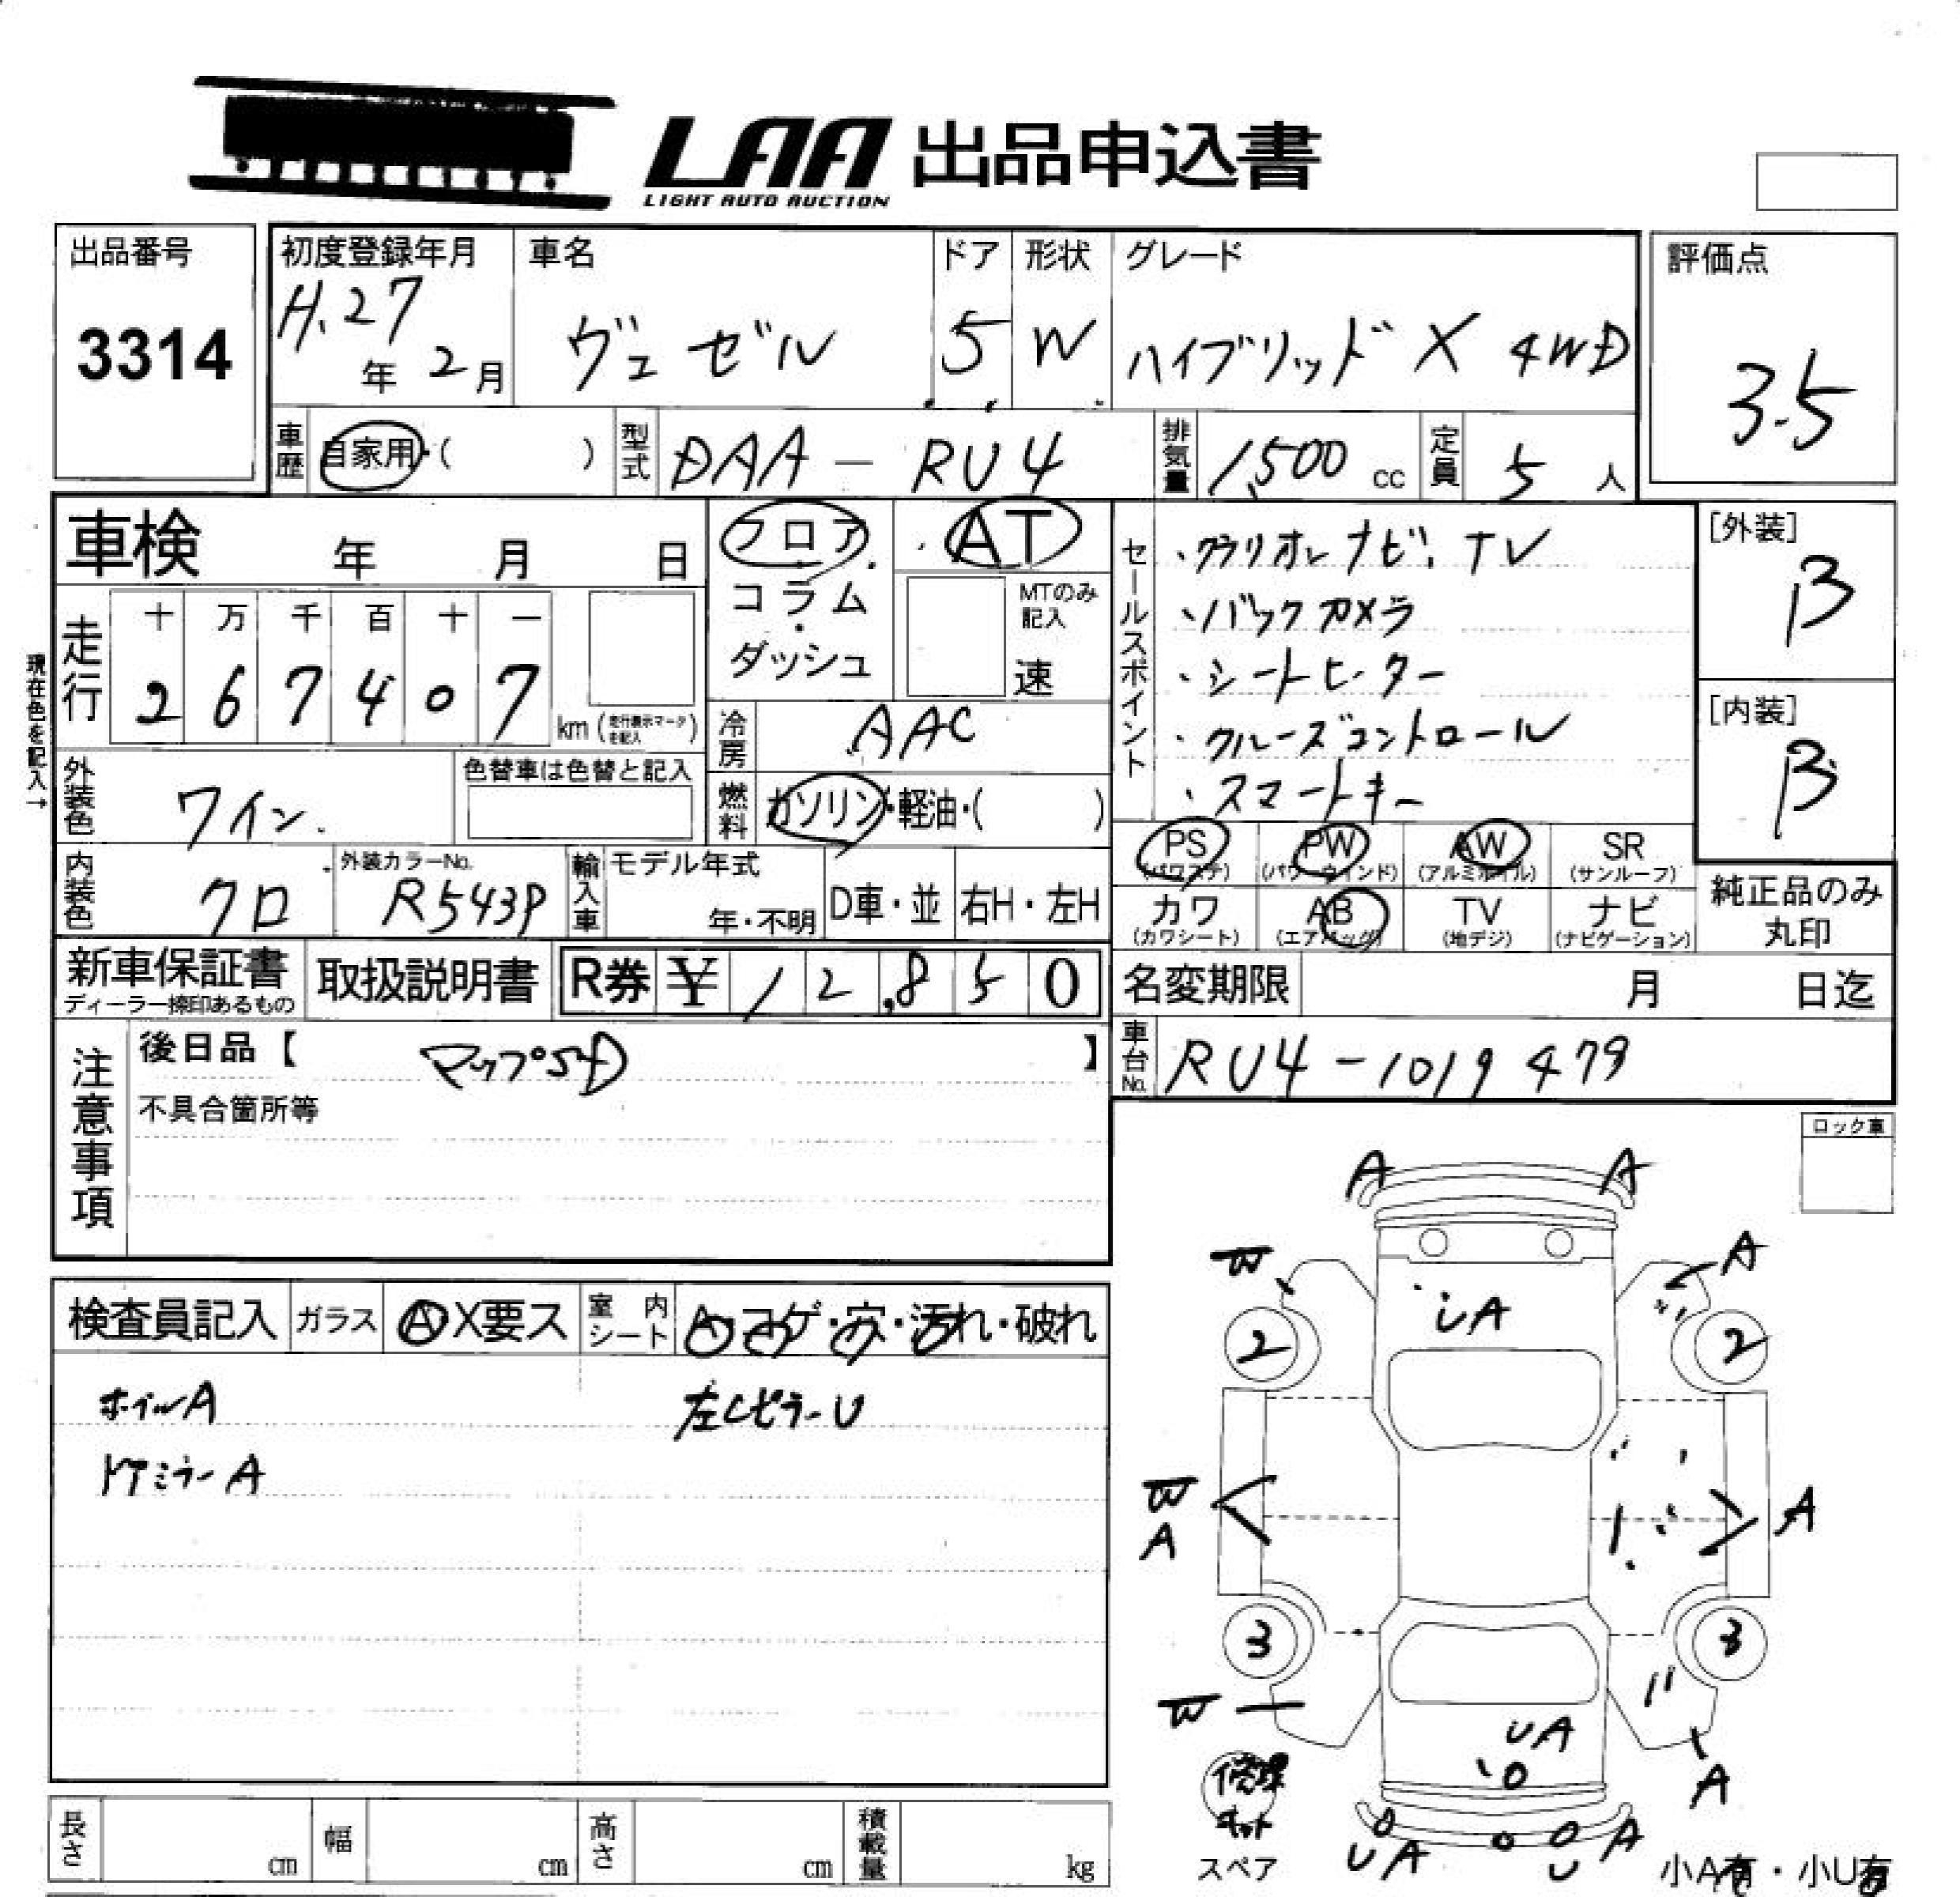 LAA 出品申込書
LIGHT AUTO AUCTION
出品番号
3314
初度登録年月
H.27年 2月
車名
ヴェゼル
ドア
5
形状
W
グレード
ハイブリッド X 4WD
評価点
3.5
車歴 自家用・( )
型式 DAA-RU4
排気量 1,500 cc
定員 5 人
車検 年 月 日
フロア・コラム・ダッシュ
AT
MTのみ記入
速
走行
十 万 千 百 十 一
2 6 7 4 0 7 km (走行表示マークを記入)
現在色を記入→
冷房 AAC
外装色 ワイン
色替車は色替と記入
燃料 ガソリン・軽油・( )
内装色 クロ
外装カラーNo. R543P
輸入車
モデル年式
年・不明
D車・並
右H・左H
セールスポイント
・クラリオンナビ、TV
・バックカメラ
・シートヒーター
・クルーズコントロール
・スマートキー
[外装]
B
[内装]
B
PS (パワステ)
PW (パワーウィンド)
AW (アルミホイル)
SR (サンルーフ)
カワ (カワシート)
AB (エアバッグ)
TV (地デジ)
ナビ (ナビゲーション)
純正品のみ丸印
新車保証書
ディーラー捺印あるもの
取扱説明書
R券 ¥ 12,850
名変期限 月 日迄
注意事項
後日品【 マップSD 】
不具合箇所等
車台No. RU4-1019479
ロック車
検査員記入
ガラス
A X要ス
室内シート
A・コゲ・穴・汚れ・破れ
ホイルA
左Cピラー U
ドアミラー A
A A
W A
UA
2 2
W A A
3 3
W
UA
A
修理キット
スペア
UA U A
小A有・小U有
長さ cm
幅 cm
高さ cm
積載量 kg